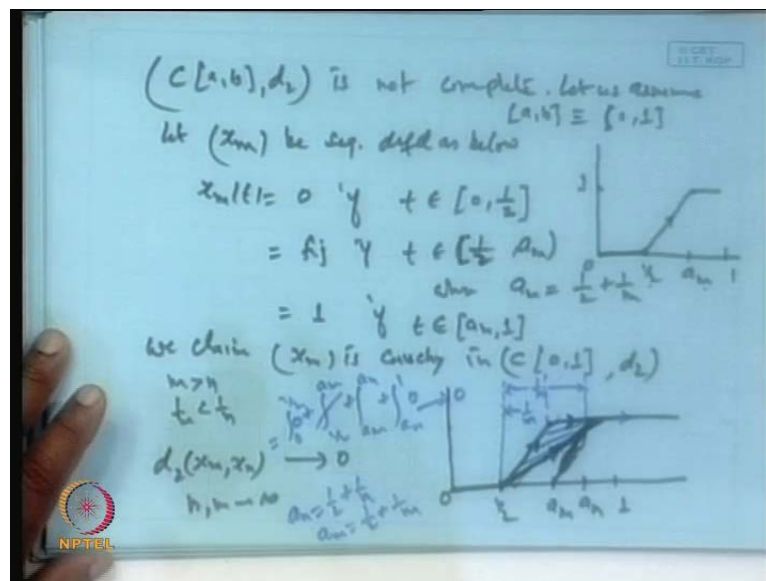 © CET
I.I.T. KGP
(C[a,b], d₂) is not complete. Let us assume
[a,b] ≡ [0,1]
Let (xₘ) be seq. defd as below
xₘ(t) = 0 if t ∈ [0, 1/2]
= if t ∈ [1/2 aₘ)
aₘ = 1/2 + 1/m
= 1 if t ∈ [aₘ,1]
1
0 1/2 aₘ 1
we claim (xₘ) is cauchy in (C[0,1], d₂)
m > n
1/m < 1/n
= ∫ + ∫ + ∫ + ∫ → 0
d₂(xₘ,xₙ) → 0
n, m → ∞
aₙ = 1/2 + 1/n
aₘ = 1/2 + 1/m
1/n
1/m
0 1/2 aₘ aₙ 1
NPTEL